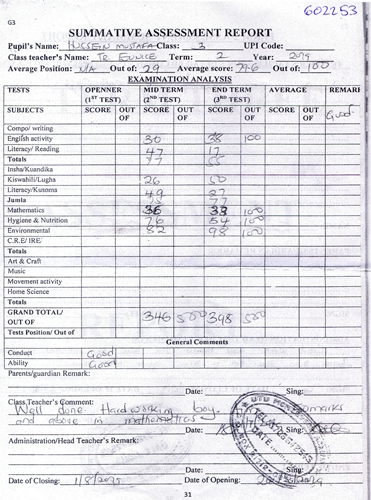 G3
602253
SUMMATIVE ASSESSMENT REPORT
Pupil's Name: HUSSEIN MUSTAFA Class: 3 UPI Code:
Class teacher's Name: TR EUNICE Term: 2 Year: 2019
Average Position: N/A Out of: 29 Average score: 79.6 Out of: 100
EXAMINATION ANALYSIS
TESTS OPENNER (1ST TEST) MID TERM (2ND TEST) END TERM (3RD TEST) AVERAGE REMARK
SUBJECTS SCORE OUT OF SCORE OUT OF SCORE OUT OF SCORE OUT OF Good
Compo/ writing
English activity 30 38 100
Literacy/ Reading 47 17
Totals 77 55
Insha/Kuandika
Kiswahili/Lugha 26 50
Literacy/Kusoma 49 27
Jumla 75 77
Mathematics 36 33 100
Hygiene & Nutrition 76 54 100
Environmental 82 98 100
C.R.E/ IRE
Totals
Art & Craft
Music
Movement activity
Home Science
Totals
GRAND TOTAL/ OUT OF 346 500 398 500
Tests Position/ Out of
General Comments
Conduct Good
Ability Good
Parents/guardian Remark:
Date: Sing:
Class Teacher's Comment:
Well done. Hard working boy. marks
and above in mathematics Date: Sing:
Administration/Head Teacher's Remark:
Date: Sing:
Date of Closing: 1/8/2019 Date of Opening:
31